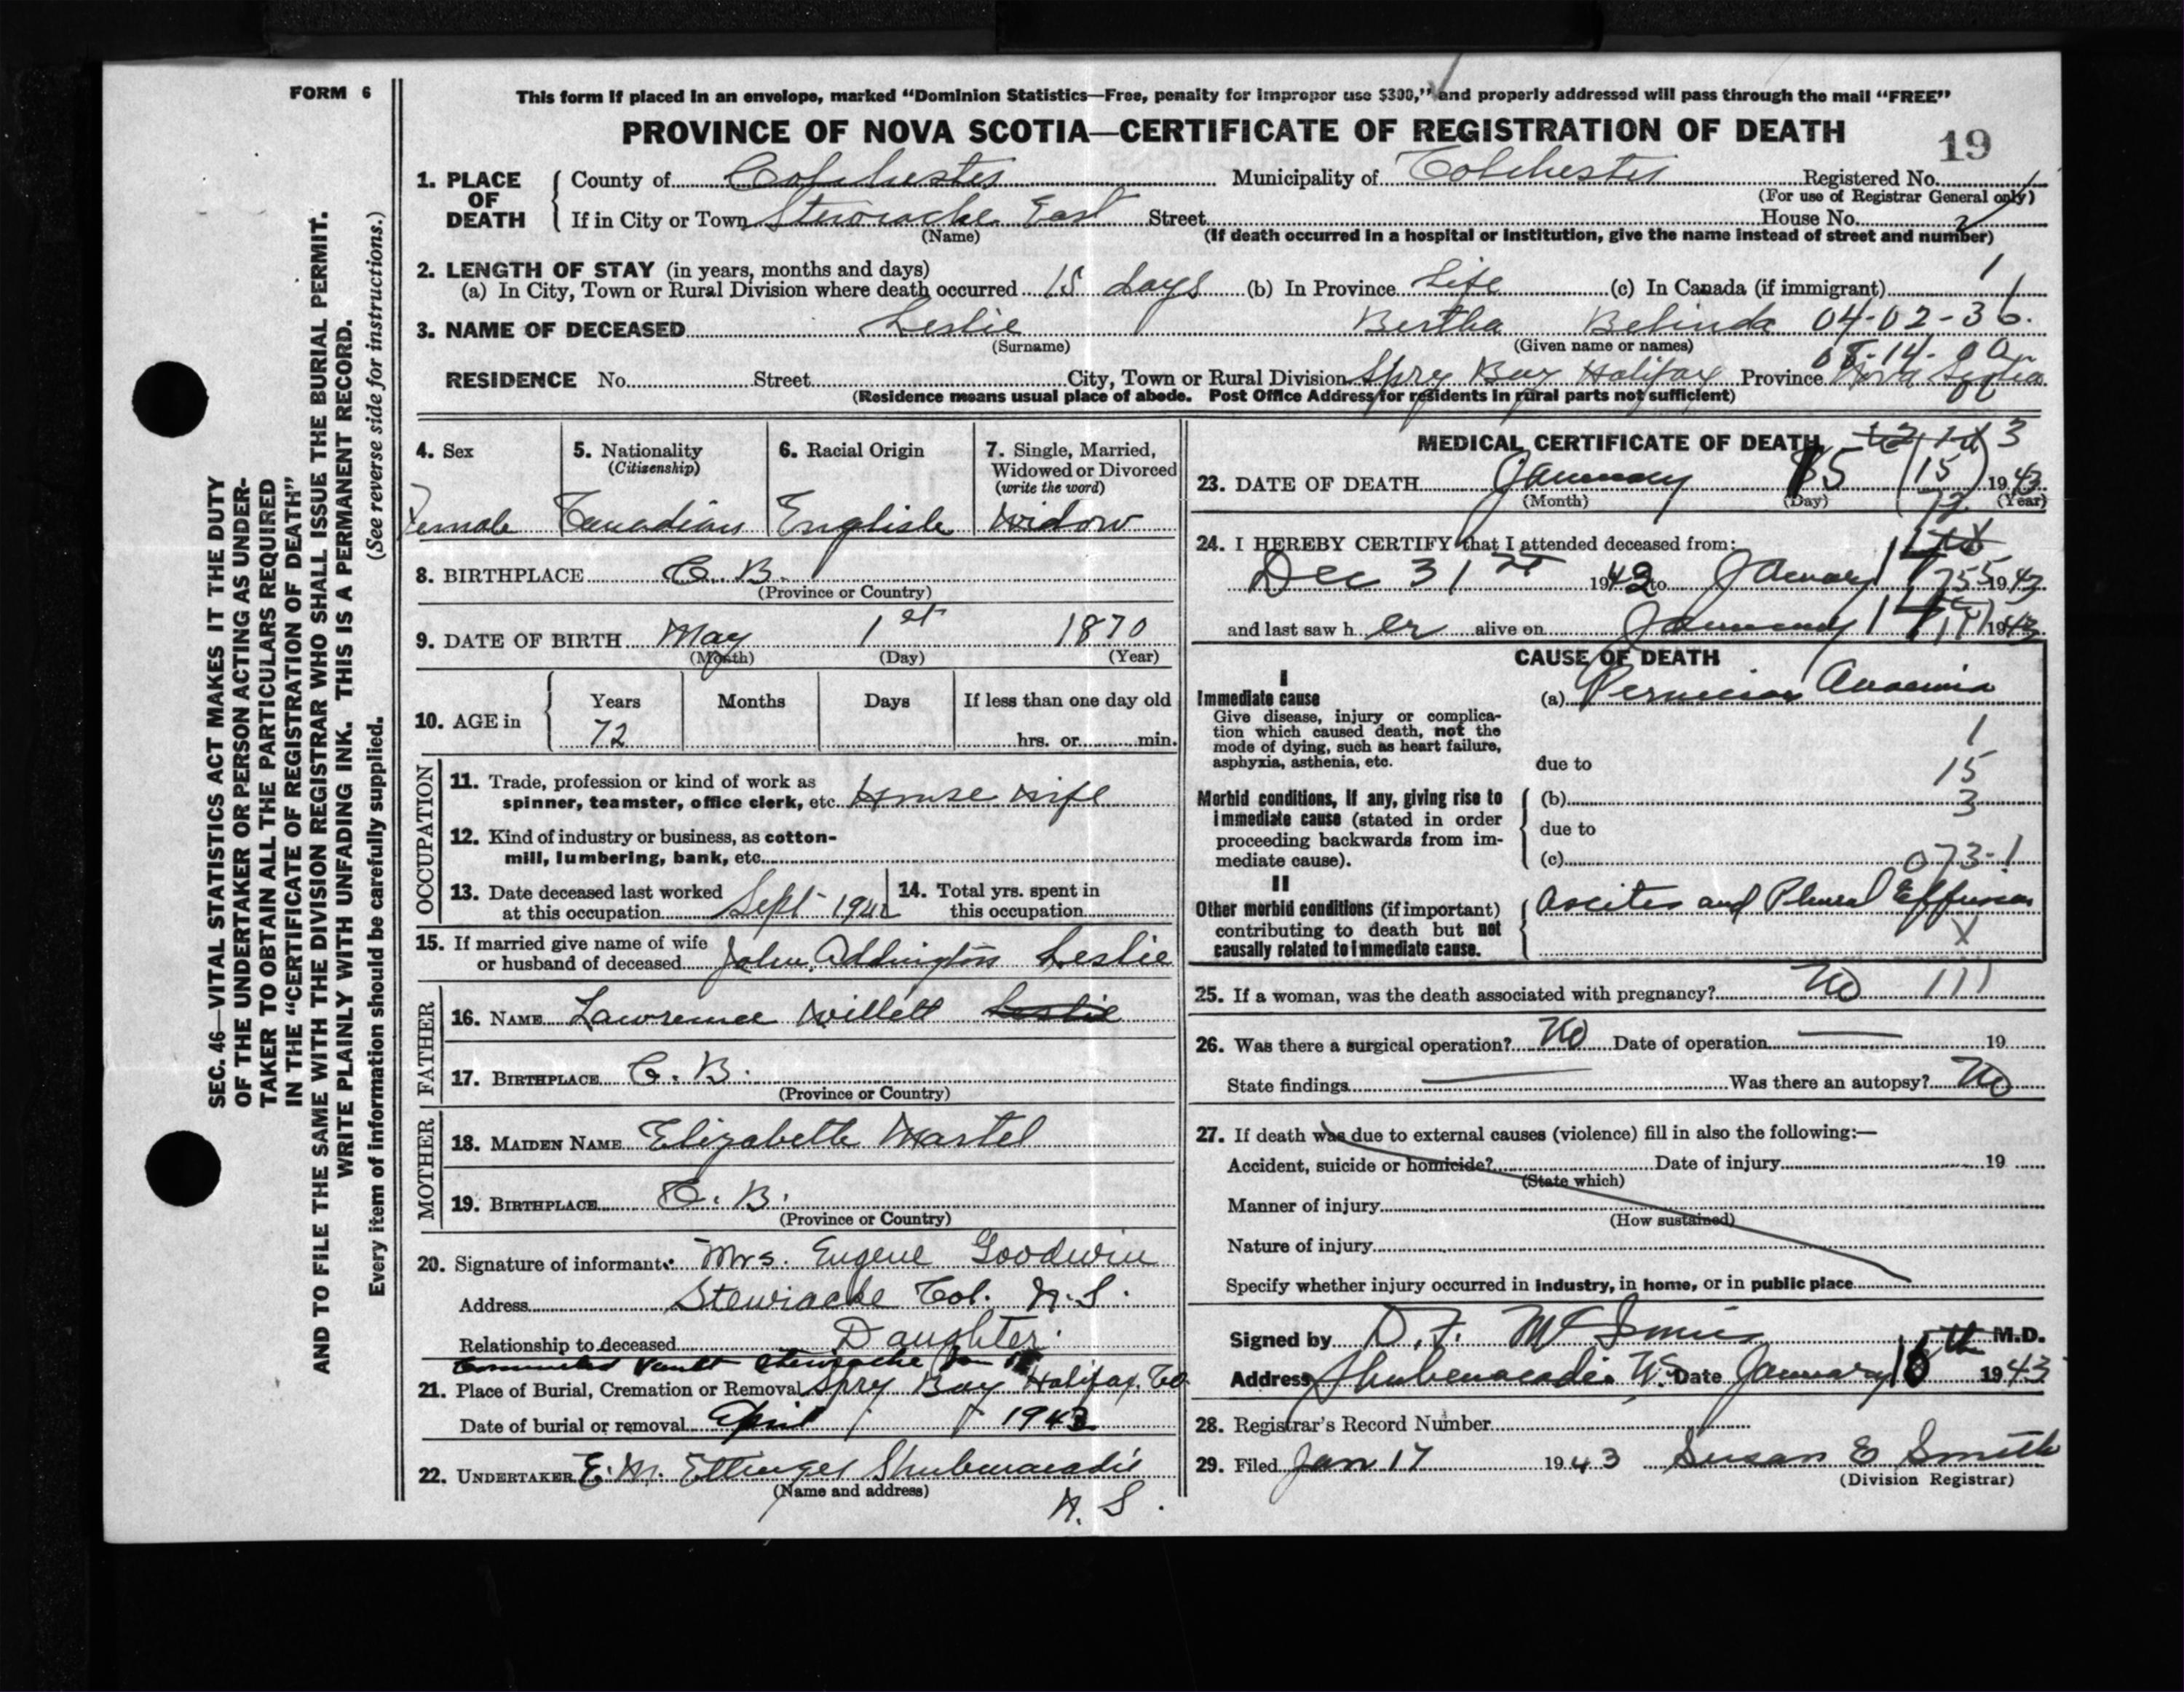 FORM 6
This form if placed in an envelope, marked "Dominion Statistics—Free, penalty for improper use $300," and properly addressed will pass through the mail "FREE"
PROVINCE OF NOVA SCOTIA—CERTIFICATE OF REGISTRATION OF DEATH
19
1. PLACE OF DEATH
County of Colchester Municipality of Colchester Registered No.
(For use of Registrar General only)
If in City or Town Stewiacke East Street House No.
(Name) (If death occurred in a hospital or institution, give the name instead of street and number)
2. LENGTH OF STAY (in years, months and days)
(a) In City, Town or Rural Division where death occurred 15 days (b) In Province Life (c) In Canada (if immigrant)
3. NAME OF DECEASED Leslie Bertha Belinda 04-02-36.
(Surname) (Given name or names)
08-14-00
RESIDENCE No. Street City, Town or Rural Division Spry Bay Halifax Province Nova Scotia
(Residence means usual place of abode. Post Office Address for residents in rural parts not sufficient)
4. Sex
Female
5. Nationality
(Citizenship)
Canadian
6. Racial Origin
English
7. Single, Married,
Widowed or Divorced
(write the word)
Widow
8. BIRTHPLACE C. B.
(Province or Country)
9. DATE OF BIRTH May 1st 1870
(Month) (Day) (Year)
10. AGE in
Years Months Days If less than one day old
72 hrs. or min.
OCCUPATION
11. Trade, profession or kind of work as
spinner, teamster, office clerk, etc. House wife
12. Kind of industry or business, as cotton-
mill, lumbering, bank, etc.
13. Date deceased last worked
at this occupation Sept 1942
14. Total yrs. spent in
this occupation
15. If married give name of wife
or husband of deceased John Addington Leslie
FATHER
16. NAME Lawrence Willett Leslie
17. BIRTHPLACE C. B.
(Province or Country)
MOTHER
18. MAIDEN NAME Elizabeth Martel
19. BIRTHPLACE C. B.
(Province or Country)
20. Signature of informant Mrs. Eugene Goodwin
Address Stewiacke Col. N.S.
Relationship to deceased Daughter.
Vault Stewiacke Jan
21. Place of Burial, Cremation or Removal Spry Bay Halifax Co
Date of burial or removal April 1943
22. UNDERTAKER E. M. Ettinger Shubenacadie
(Name and address)
N. S.
MEDICAL CERTIFICATE OF DEATH
3
23. DATE OF DEATH January 15 (15) 1943
(Month) (Day) (Year)
72
24. I HEREBY CERTIFY that I attended deceased from:
Dec 31st 1942 to January 14 1943
and last saw her alive on January 14 1943
CAUSE OF DEATH
I
Immediate cause
Give disease, injury or complica-
tion which caused death, not the
mode of dying, such as heart failure,
asphyxia, asthenia, etc.
(a) Pernicious Anaemia
1
due to
15
Morbid conditions, if any, giving rise to
immediate cause (stated in order
proceeding backwards from im-
mediate cause).
(b)
3
due to
(c) 073-1
II
Other morbid conditions (if important)
contributing to death but not
causally related to immediate cause.
Ascites and Plural Effusion
X
25. If a woman, was the death associated with pregnancy? No 111
26. Was there a surgical operation? No Date of operation — 19
State findings — Was there an autopsy? No
27. If death was due to external causes (violence) fill in also the following:—
Accident, suicide or homicide? Date of injury 19
(State which)
Manner of injury
(How sustained)
Nature of injury
Specify whether injury occurred in industry, in home, or in public place
Signed by D. F. McInnis M.D.
Address Shubenacadie N.S. Date January 16th 1943
28. Registrar's Record Number
29. Filed Jan 17 1943 Susan E Smith
(Division Registrar)
SEC. 46—VITAL STATISTICS ACT MAKES IT THE DUTY
OF THE UNDERTAKER OR PERSON ACTING AS UNDER-
TAKER TO OBTAIN ALL THE PARTICULARS REQUIRED
IN THE "CERTIFICATE OF REGISTRATION OF DEATH"
AND TO FILE THE SAME WITH THE DIVISION REGISTRAR WHO SHALL ISSUE THE BURIAL PERMIT.
WRITE PLAINLY WITH UNFADING INK. THIS IS A PERMANENT RECORD.
Every item of information should be carefully supplied. (See reverse side for instructions.)